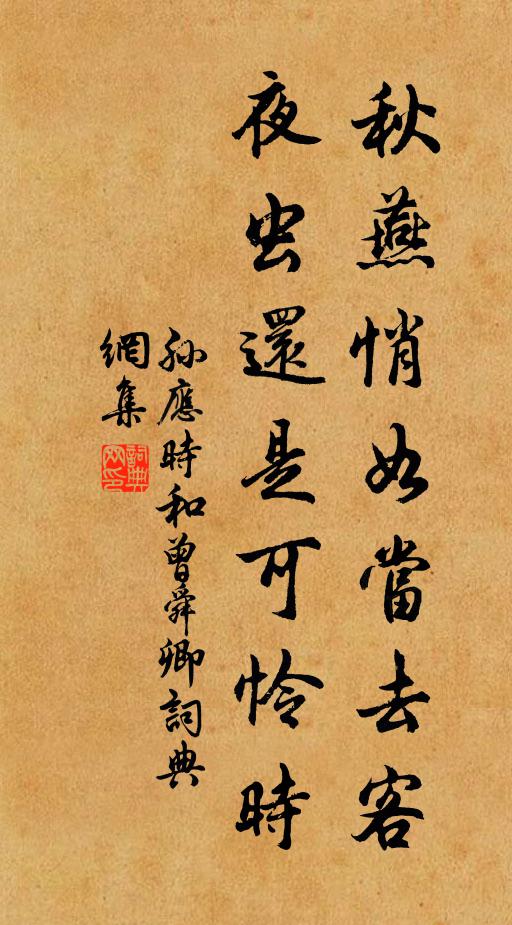 秋燕悄如當去客
夜虫還是可怜時
孫應時和曾舜卿詞典
網集
詞典
网印